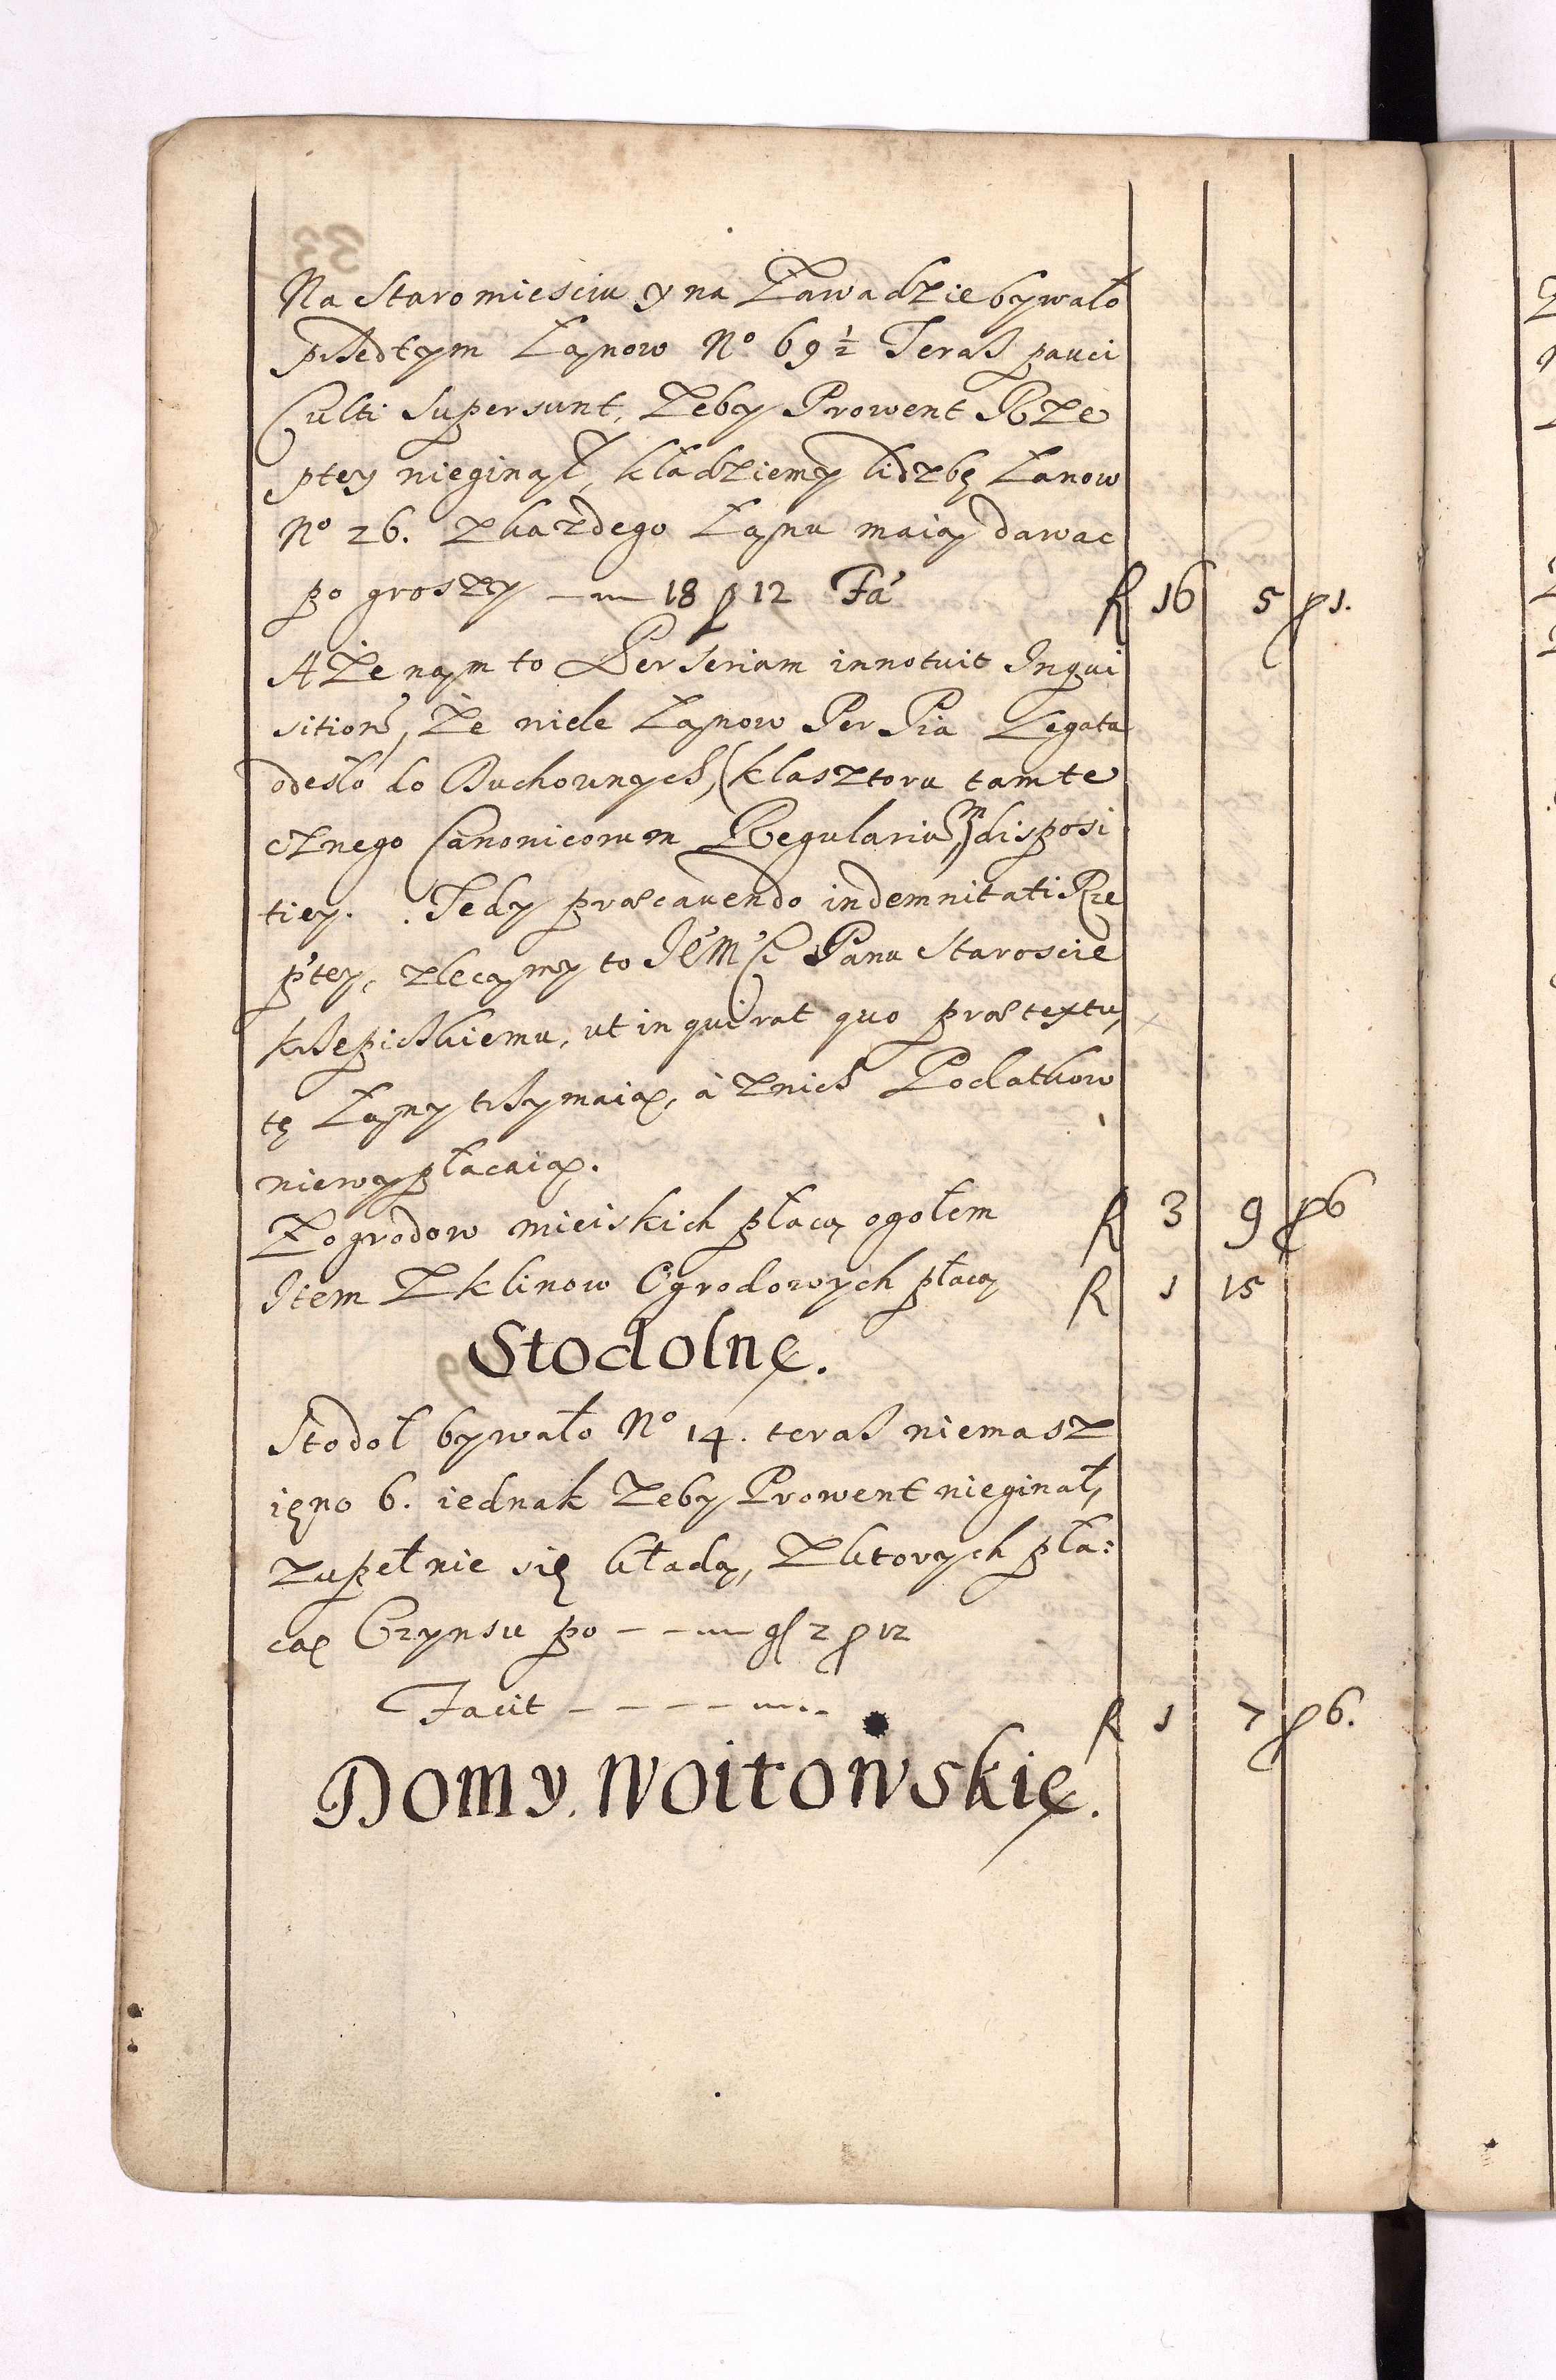 Na Staromiesciu y na Zawadzie bywało
przedtym Łąnow No 69 1/2 Teraß pauci
Culti supersunt, Zeby Prowent RZe
ptey nieginął, kładziemy lidzbę Łanow
No 26. Zkazdego Łąnu maią dawac
po groszy — 18 ₰ 12 Fa' R 16 5 ₰ 1.
A Ze nąm to Per seriam innotuit Inqui
sition', Ze niele Łąnow Per Pia Legata
odesło do Duchownych, (klasztoru tamte
cznego Canonicorum Regularium) disposi
tiey. Tedy præcauendo indemnitati Rze
p'tey, zlecąmy to Je'M'Ci Panu Staroscie
krzepickiemu, ut inquirat quo prætextu,
tę Łąny trzymaią, à Znich Podatkow
niewypłacaią.
Zogrodow mieiskich płacą ogołem R 3 9 ₰ 6
Item Zklinow Ogrodowych płacą R 1 15
Stodolnę.
Stodoł bywało No 14. teraß niemasz
ięno 6. iednak Zeby Prowent nieginał,
zupełnie się kładą, Zktorych pła:
cą Czynsu po — — gſ 2 ₰ 12
Facit — — — — R 1 7 ₰ 6.
Domy. Woitowskię.